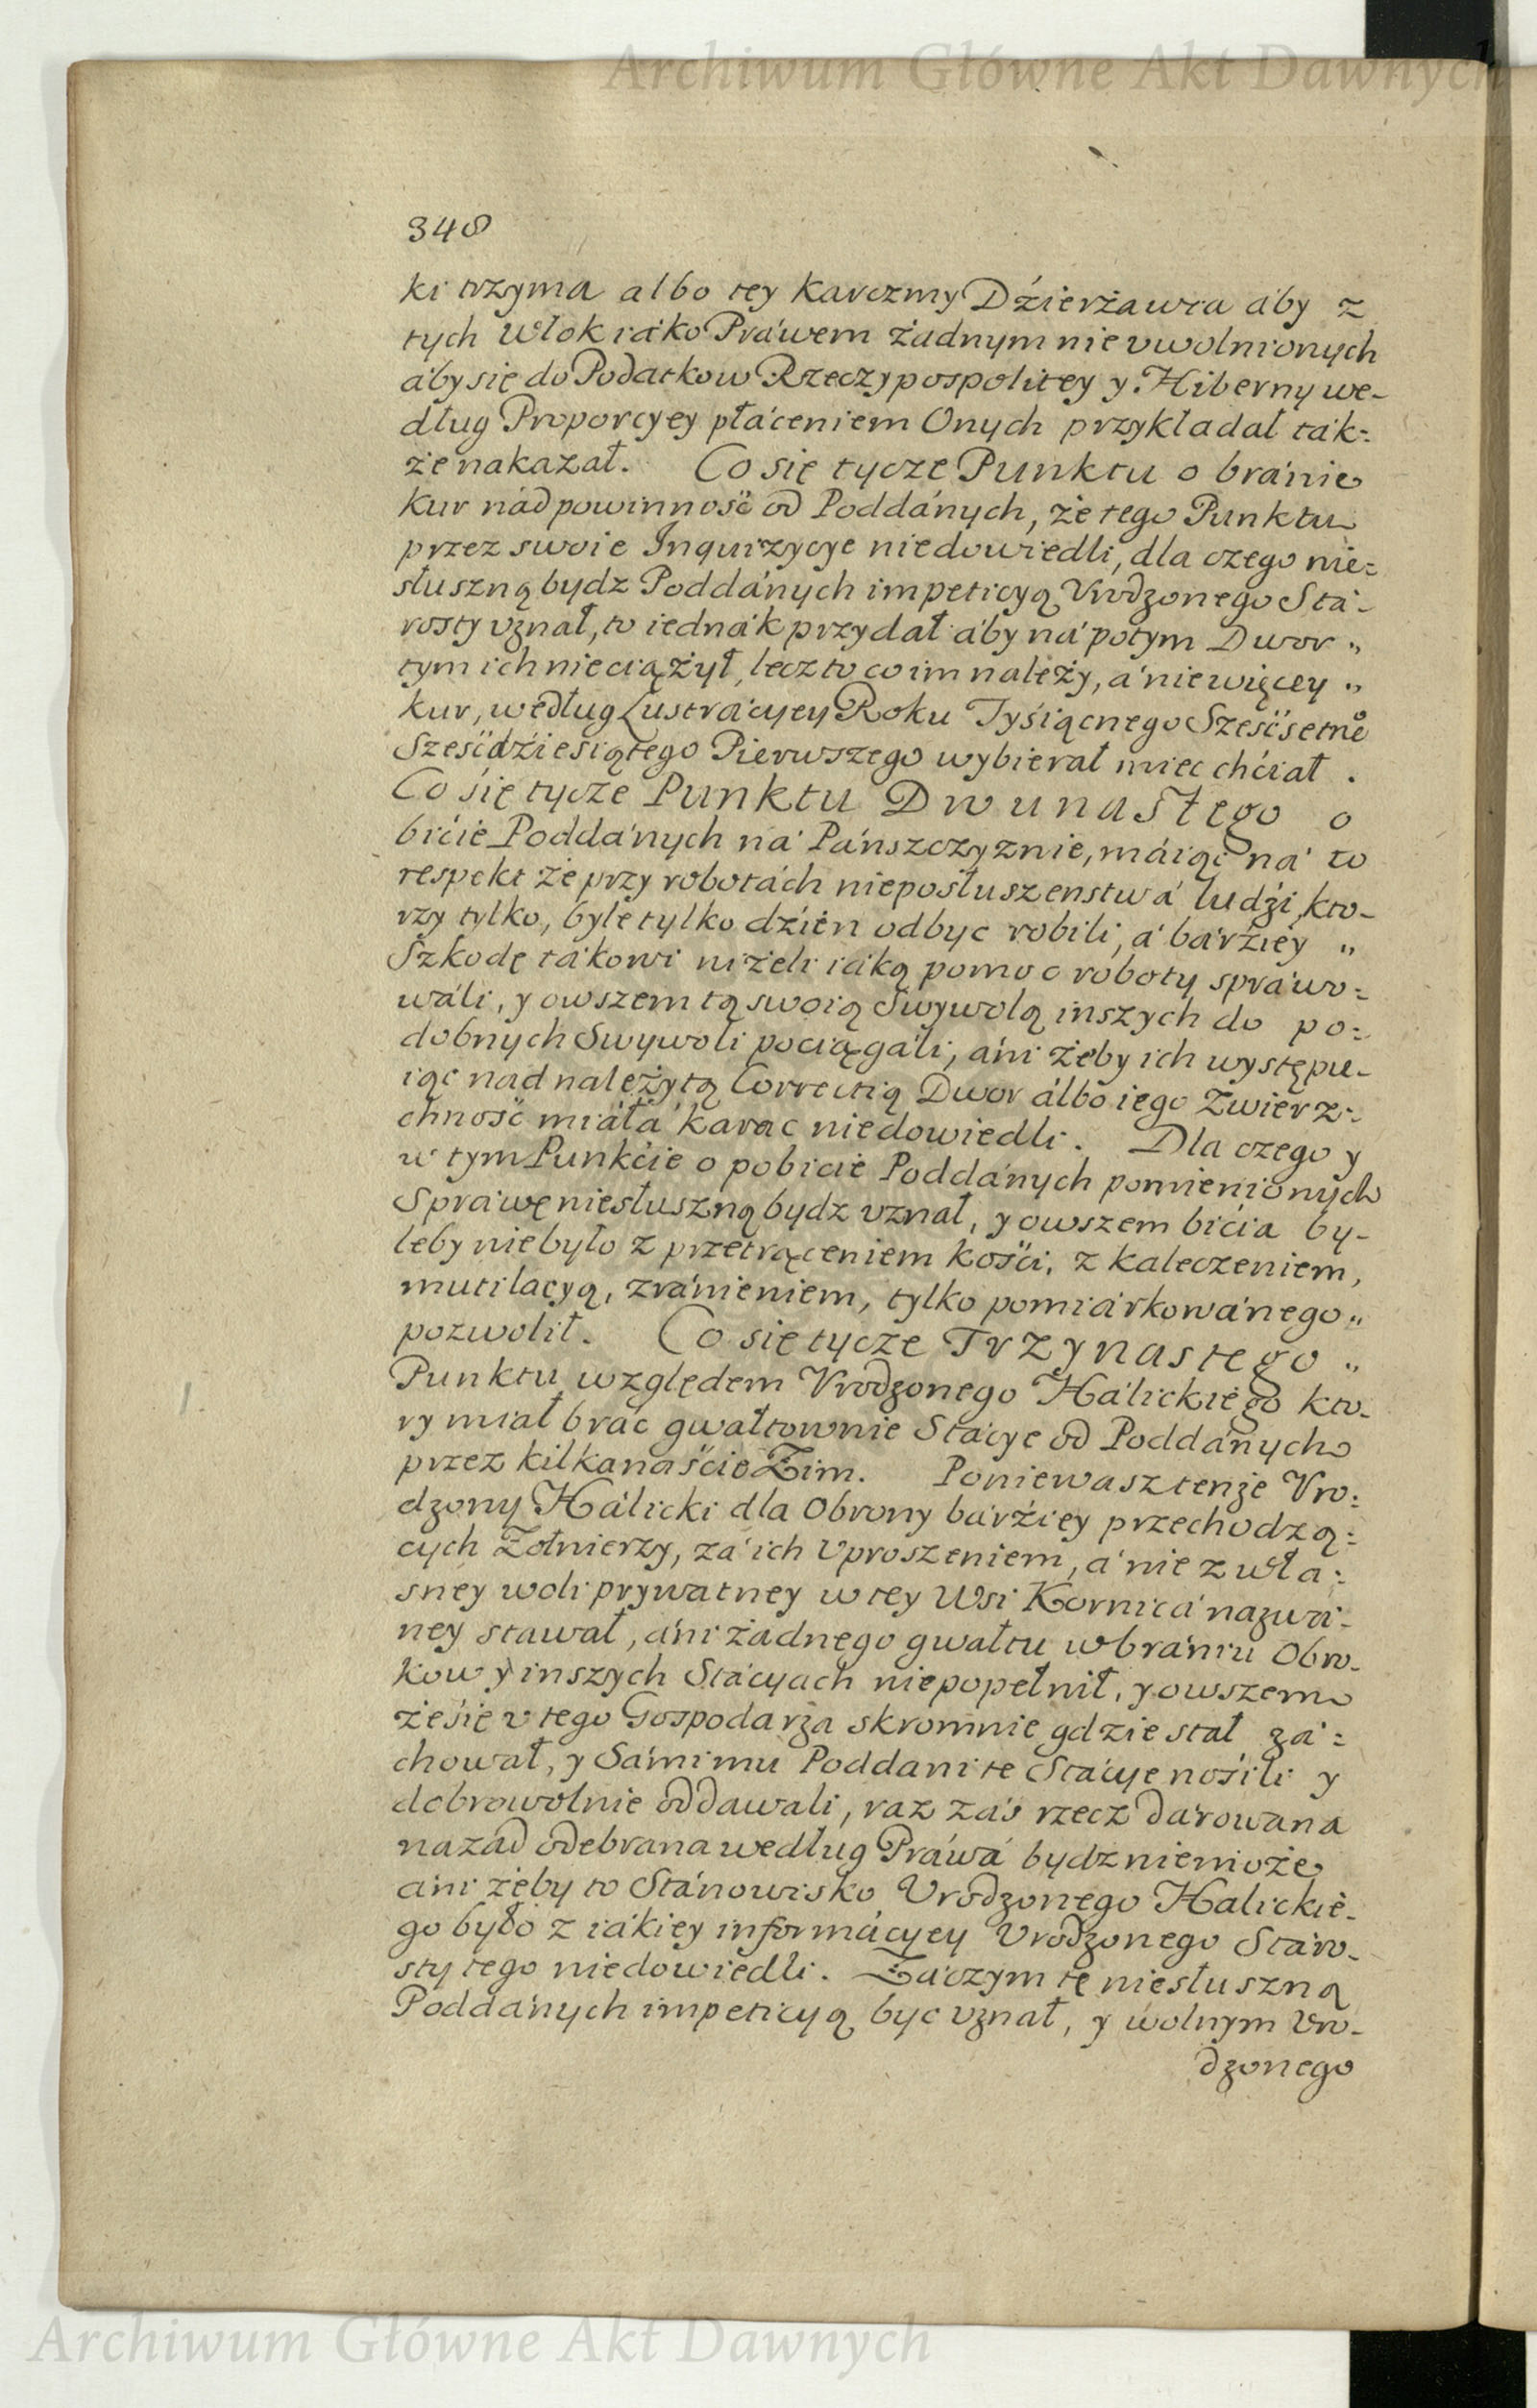 Archiwum Główne Akt Dawnych
348
ki trzyma albo tey Karczmy Dźierżawca áby z
tych Włok iáko Práwem żadnym nie vwolnionych
áby się do Podatkow Rzeczypospolitey y Hiberny we-
dług Proporcyey płáceniem Onych przykładał ták=
że nakazał. Co się tycze Punktu o bránie
Kur nád powinność od Poddánych, że tego Punktu
przez swoie Inquizycye niedowiedli, dla czego nie=
słuszną bydz Poddánych impeticyą Vrodzonego Stá-
rosty vznał, to iednák przydał áby ná potym Dwor „
tym ich nie ciążył, lecz to co im należy, á nie więcey „
kur, według Lustrácyey Roku Tyśiącnego Sześćsetneº
Sześćdźieśiątego Pierwszego wybierał miec chćiał .
Co się tycze Punktu Dwunastego o
bićie Poddánych ná Pánszczyznie, máiąc ná to
respekt że przy robotách nieposłuszenstwá ludźi, kto-
rzy tylko, byle tylko dźień odbyc robili, á bárźiey „
Szkodę tákowi niżeli iáką pomoc roboty spráwo=
wáli, y owszem tą swoią Swywolą inszych do po=
dobnych Swywoli pociągáli, áni żeby ich występu-
iąc nad należytą Correctią Dwor álbo iego Zwierz=
chność miáłá karac niedowiedli. Dla czego y
w tym Punkćie o pobicie Poddánych pomienionych
Spráwę niesłuszną bydz vznał, y owszem bićia by-
leby niebyło z przetrąceniem kośći, z kaleczeniem,
mutilacyą, zránieniem, tylko pomiárkowánego „
pozwolił. Co się tycze Trzynastego „
Punktu względem Vrodzonego Hálickiego kto-
ry miał brác gwałtownie Stácye od Poddánych
przez kilkanaśćie Zim. Poniewasz tenże Vro=
dzony Hálicki dla Obrony bárźiey przechodzą=
cych Zołnierzy, zá ich Vproszeniem, á nie z włá=
sney woli prywatney w tey Wsi Kornicá nazwá-
ney stawał, áni żadnego gwałtu w brániu Obro-
kow y inszych Stácyach niepopełnił, y owszem
że się v tego Gospodarza skromnie gdzie stał zá=
chował, y Sámi mu Poddani te Stácye nośili y
dobrowolnie oddawali, raz zás rzecz dárowana
nazad odebrana według Práwá bydz niemoże
áni żeby to Stánowisko Vrodzonego Halickie-
go było z iákiey informácyey Vrodzonego Stáro-
sty tego niedowiedli. Záczym tę niesłuszną
Poddánych impeticyą byc vznał, y wolnym Vro-
dzonego
Archiwum Główne Akt Dawnych